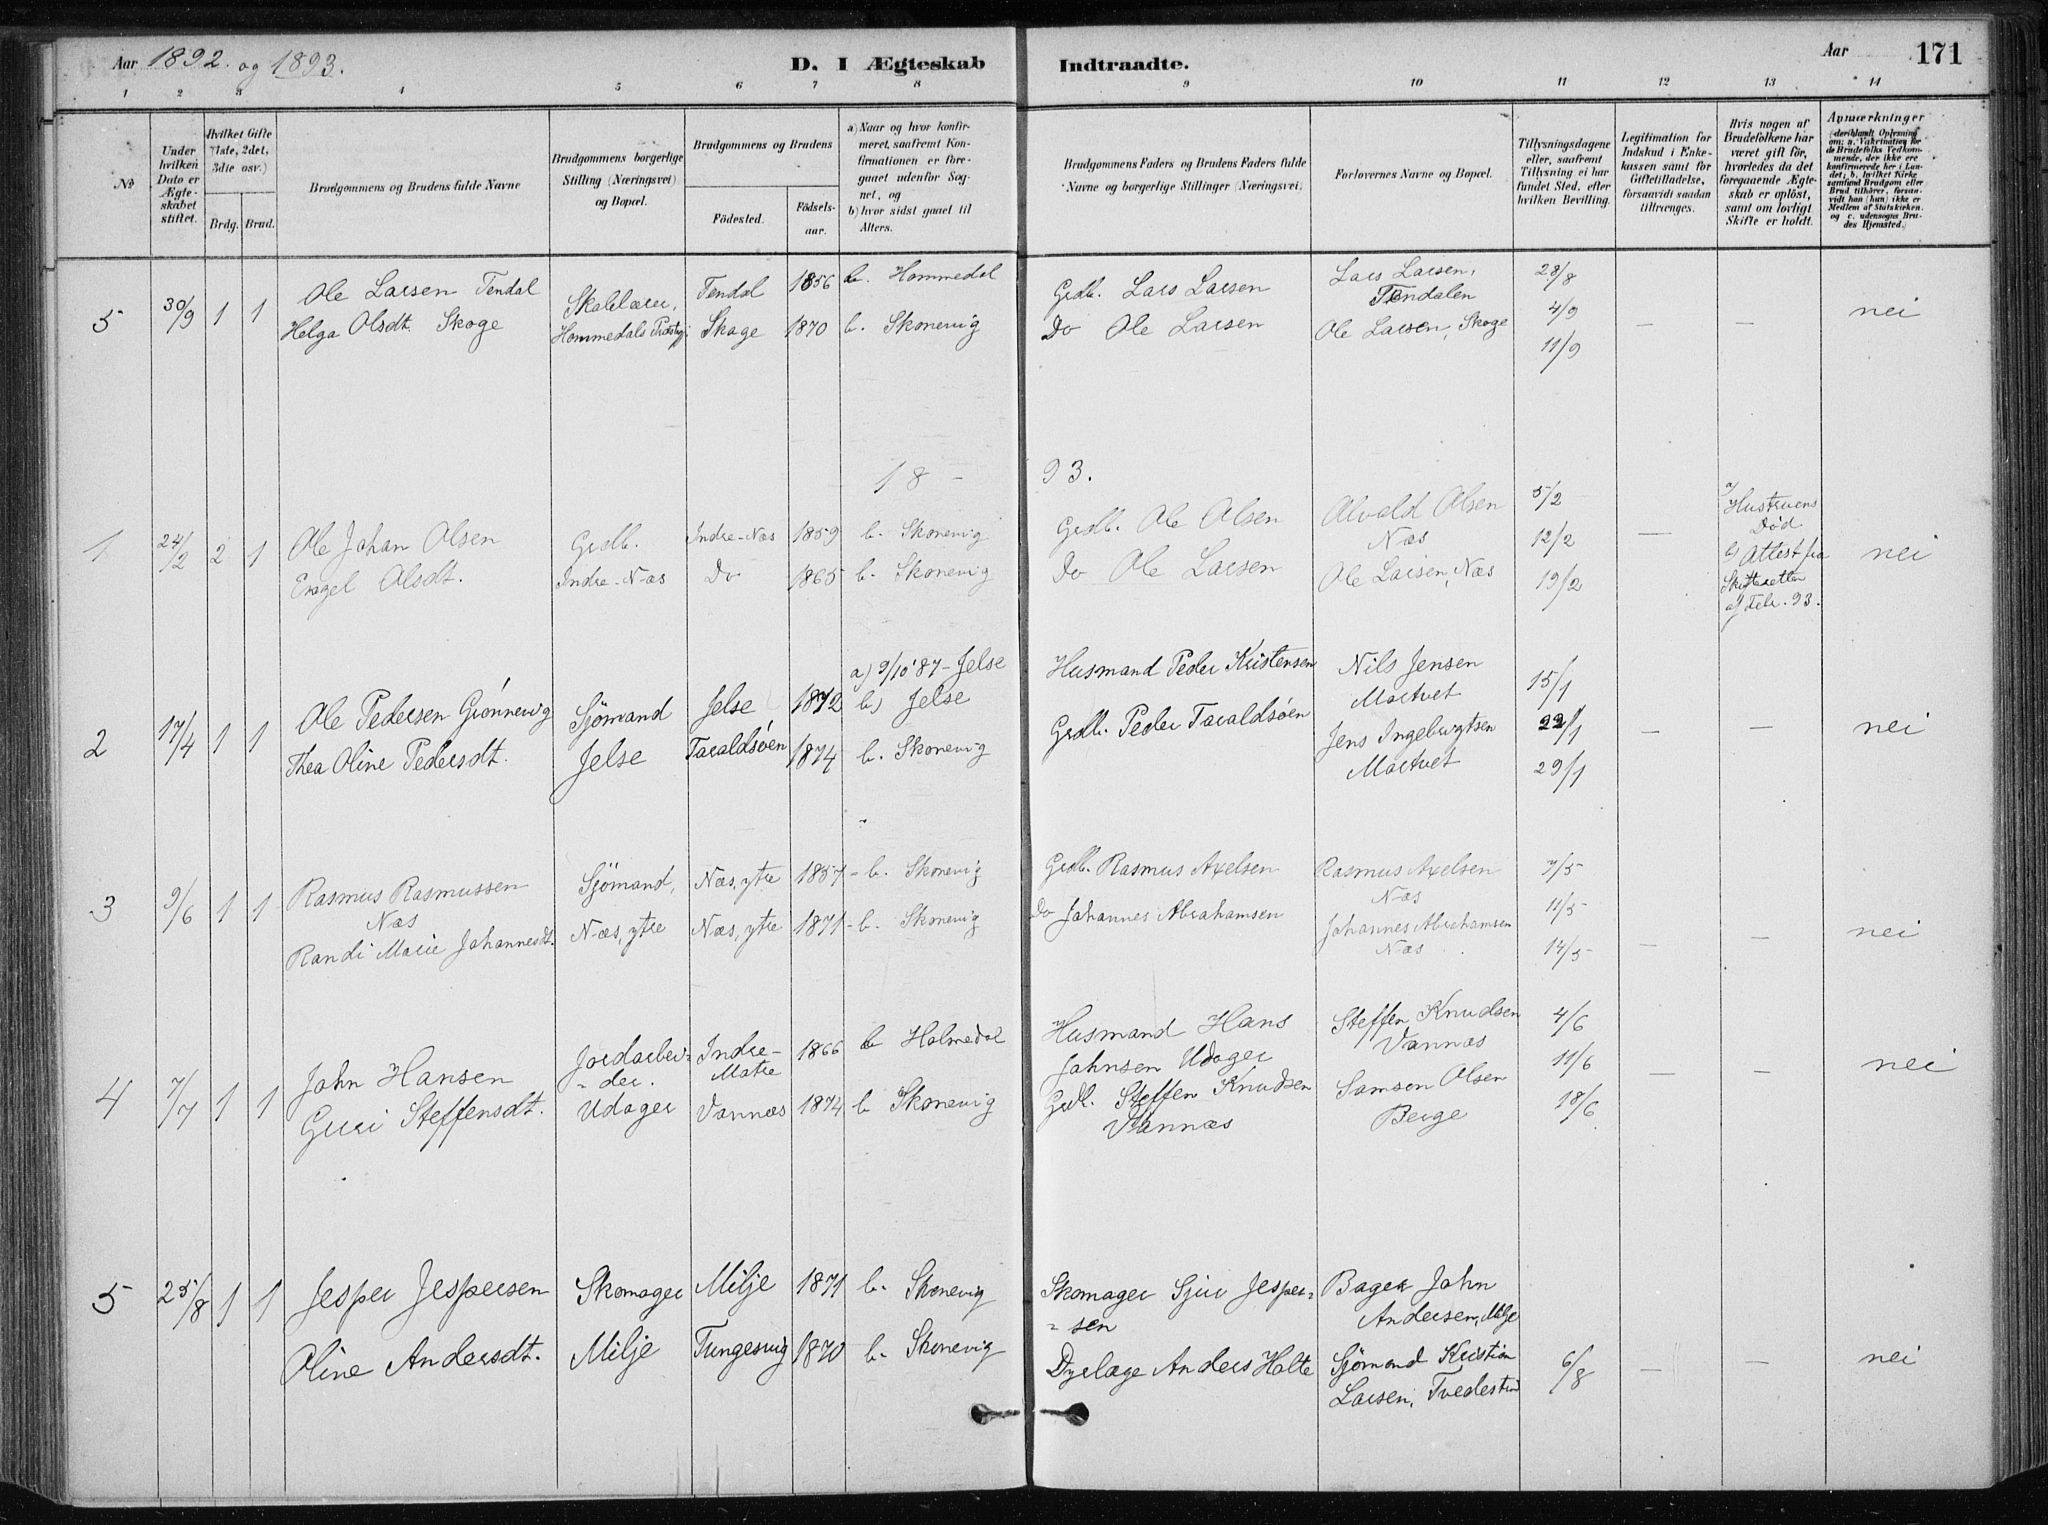 Aar 1892. og 1893.
D. I Ægteskab Indtraadte.
Aar 171
1 2 3 4 5 6 7 8 9 10 11 12 13 14
No
Under hvilken Dato er Ægte-skabet stiftet.
Hvilket Gifte (1ste, 2det, 3die osv.)
Brdg. Brud.
Brudgommens og Brudens fulde Navne
Brudgommens borgerlige Stilling (Næringsvei) og Bopæl.
Brudgommens og Brudens
Födested.
Födsels-aar.
a) Naar og hvor konfir-meret, saafremt Kon-firmationen er fore-gaaet udenfor Sog-net, og
b) hvor sidst gaaet til Alters.
Brudgommens Faders og Brudens Faders fulde Navne og borgerlige Stillinger (Næringsvei).
Forlovernes Navne og Bopæl.
Tillysningsdagene eller, saafremt Tillysning ei har fundet Sted, efter hvilken Bevilling.
Legitimation for Indskud i Enke-kassen samt for Giftetilladelse, forsaavidt saadan tiltrænges.
Hvis nogen af Brudefolkene har været gift för, hvorledes da det foregaaende Ægte-skab er oplöst, samt om lovligt Skifte er holdt.
Anmærkninger
(deriblandt Oplysning om: a. Vakcination for de Brudefolks Vedkom-mende, der ikke ere konfirmerede her i Lan-det; b. hvilket Kirke-samfund Brudgom eller Brud tilhörer, forsaa-vidt han (hun) ikke er Medlem af Statskirken, og c. udensogns Bru-des Hjemsted.)
5 30/9 1 1 Ole Larsen Tendal Skolelærer, Tendal 1856 b. Hommedal Grdb. Lars Larsen Lars Larsen, Tendalen 28/8
Helga Olsdt. Skoge Hommedals Skoge 1870 b. Skonevig Do Ole Larsen Ole Larsen, Skoge 4/9 — — nei
11/9
18 - 93.
1 24/2 2 1 Ole Johan Olsen Grdb. Indre-Næs 1859 b. Skonevig Grdb. Ole Olsen Alvald Olsen Næs 5/2
Engel Olsdt. Indre-Næs Do 1865 b. Skonevig Do Ole Larsen Ole Larsen, Næs 12/2 — nei
19/2
a) Hustruens Död
b) Attest fra Skifteretten af Febr. 93.
2 17/4 1 1 Ole Pedersen Grönnevig Sjömand Jelse 1872 a) 9/10 '87 - Jelse b) Jelse Husmand Peder Kristensen Nils Jensen Martvet 15/1
Thea Oline Pedersdt. Jelse Taraldsöen 1874 b. Skonevig Grdb. Peder Taraldsöen Jens Ingebrigtsen Martvet 22/1 — — nei
29/1
3 9/6 1 1 Rasmus Rasmussen Næs Sjömand, Næs, ytre 1857 - b. Skonevig Grdb. Rasmus Axelsen Rasmus Axelsen Næs 7/5
Randi Marie Johannesdt. Næs, ytre Næs, ytre 1871 - b. Skonevig Do Johannes Abrahamsen Johannes Abrahamsen Næs 11/5 — — nei
14/5
4 7/7 1 1 John Hansen Jordarbei-der. Indre-Matre 1866 b Holmedal Husmand Hans Johnsen Udager Steffen Knudsen Vannæs 4/6
Guri Steffensdt. Udager Vannæs 1874 b Skonevig Grdb. Steffen Knudsen Vannæs Samson Olsen Berge 11/6 — — nei
18/6
5 25/8 1 1 Jesper Jespersen Skomager Milje 1871 b. Skonevig Skomager Sjur Jesper-sen Bager John Andersen, Milje
Oline Andersdt. Milje Tungesvig 1870 b. Skonevig Dyrlæge Anders Holte Sjömand Kristian Larsen, Tvedestrand 6/8 — — nei